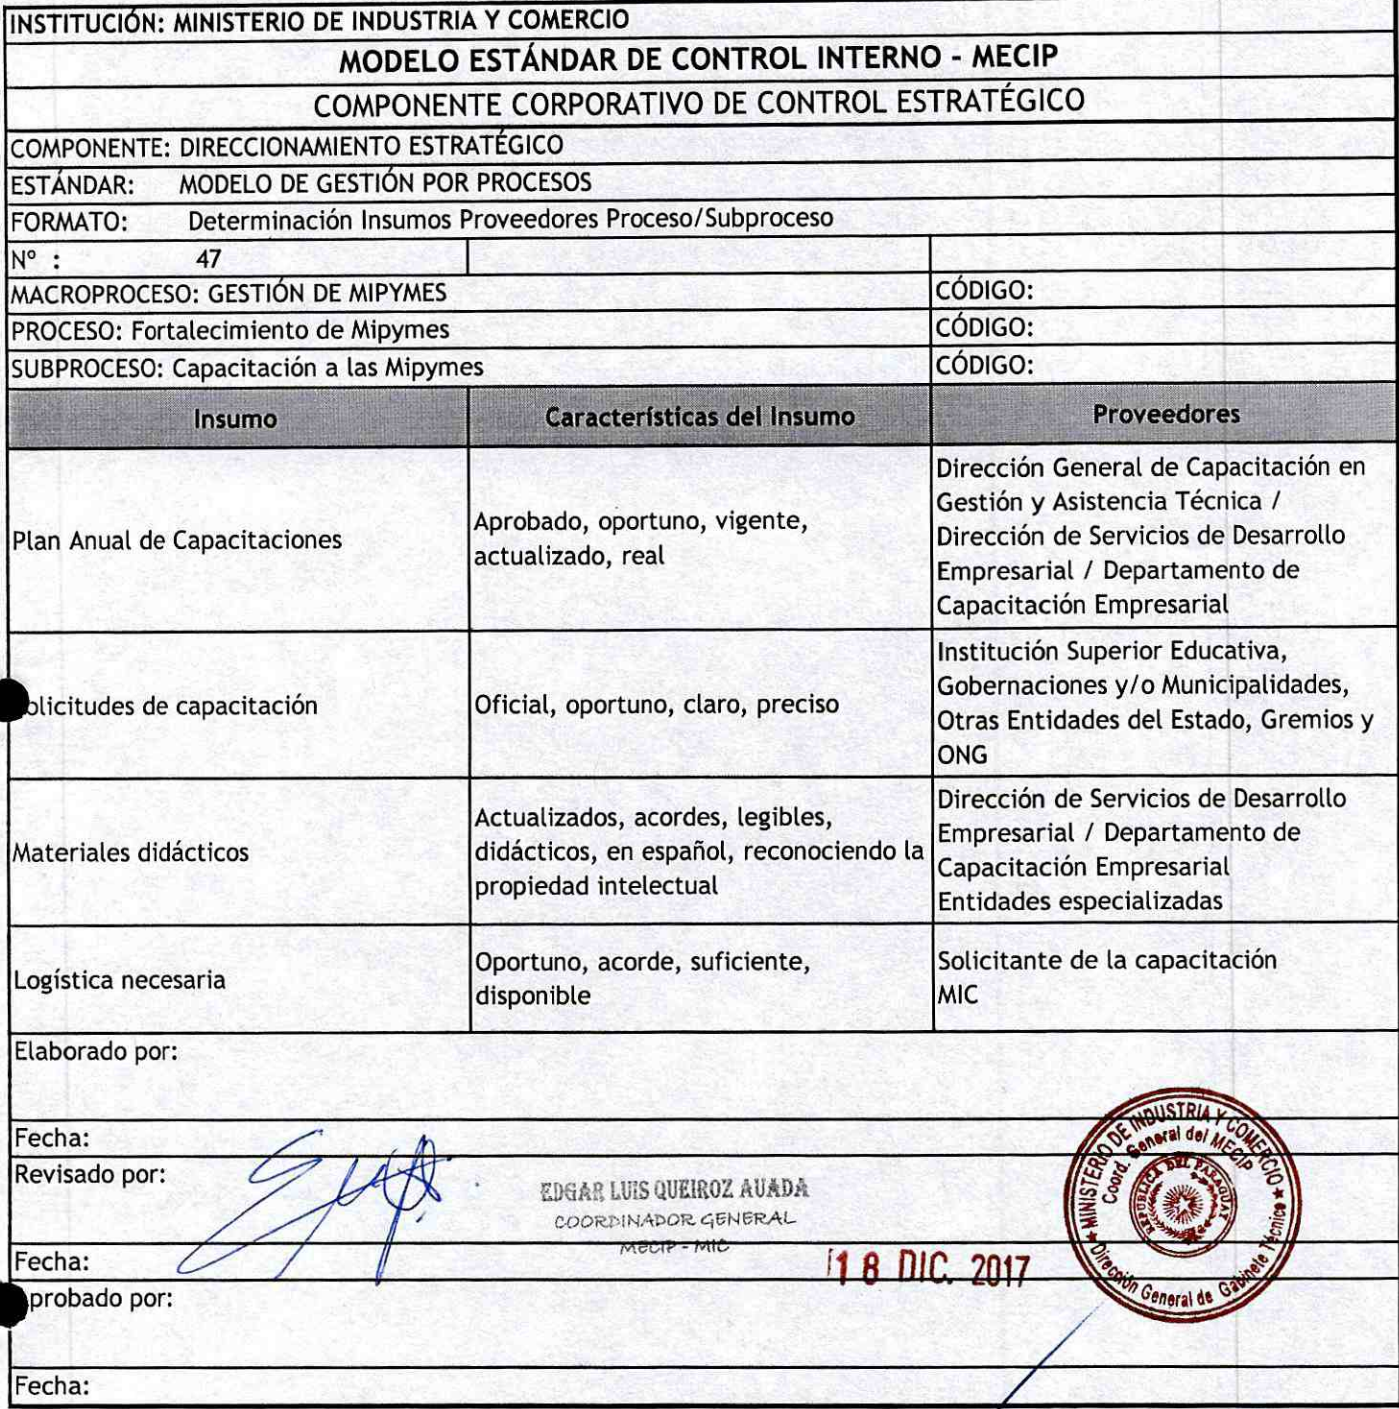 INSTITUCIÓN: MINISTERIO DE INDUSTRIA Y COMERCIO
MODELO ESTÁNDAR DE CONTROL INTERNO - MECIP
COMPONENTE CORPORATIVO DE CONTROL ESTRATÉGICO
COMPONENTE: DIRECCIONAMIENTO ESTRATÉGICO
ESTÁNDAR: MODELO DE GESTIÓN POR PROCESOS
FORMATO: Determinación Insumos Proveedores Proceso/Subproceso
Nº : 47
MACROPROCESO: GESTIÓN DE MIPYMES CÓDIGO:
PROCESO: Fortalecimiento de Mipymes CÓDIGO:
SUBPROCESO: Capacitación a las Mipymes CÓDIGO:
Insumo Características del Insumo Proveedores
Plan Anual de Capacitaciones
Aprobado, oportuno, vigente,
actualizado, real
Dirección General de Capacitación en
Gestión y Asistencia Técnica /
Dirección de Servicios de Desarrollo
Empresarial / Departamento de
Capacitación Empresarial
olicitudes de capacitación
Oficial, oportuno, claro, preciso
Institución Superior Educativa,
Gobernaciones y/o Municipalidades,
Otras Entidades del Estado, Gremios y
ONG
Materiales didácticos
Actualizados, acordes, legibles,
didácticos, en español, reconociendo la
propiedad intelectual
Dirección de Servicios de Desarrollo
Empresarial / Departamento de
Capacitación Empresarial
Entidades especializadas
Logística necesaria
Oportuno, acorde, suficiente,
disponible
Solicitante de la capacitación
MIC
Elaborado por:
Fecha:
Revisado por:
EDGAR LUIS QUEIROZ AUADA
COORDINADOR GENERAL
MECIP - MIC
Fecha:
18 DIC. 2017
MINISTERIO DE INDUSTRIA Y COMERCIO
Coord. General del MECIP
REPUBLICA DEL PARAGUAY
Dirección General de Gabinete Técnico
probado por:
Fecha: